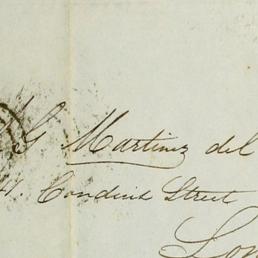 G Martinez del
47. Conduit Street
Lon